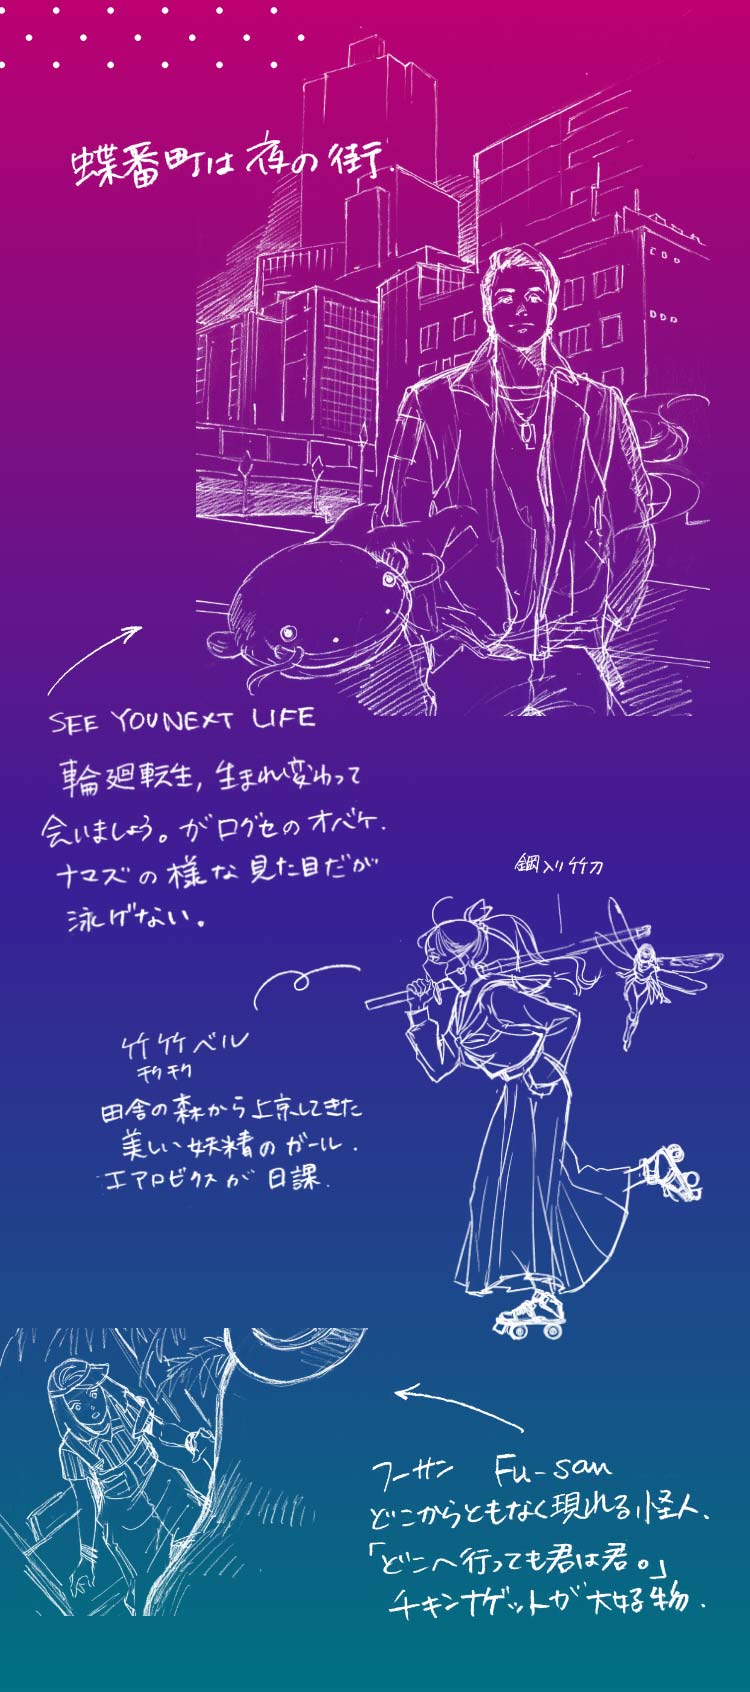 蝶番町は夜の街.
SEE YOU NEXT LIFE
輪廻転生,生まれ変わって
会いましょう。が口グセのオバケ.
ナマズの様な見た目だが
泳げない。
鋼入り竹刀
竹竹ベル
チクチク
田舎の森から上京してきた
美しい妖精のガール.
エアロビクスが日課.
フーサン Fu-san
どこからともなく現れる怪人.
「どこへ行っても君は君。」
チキンナゲットが大好物.